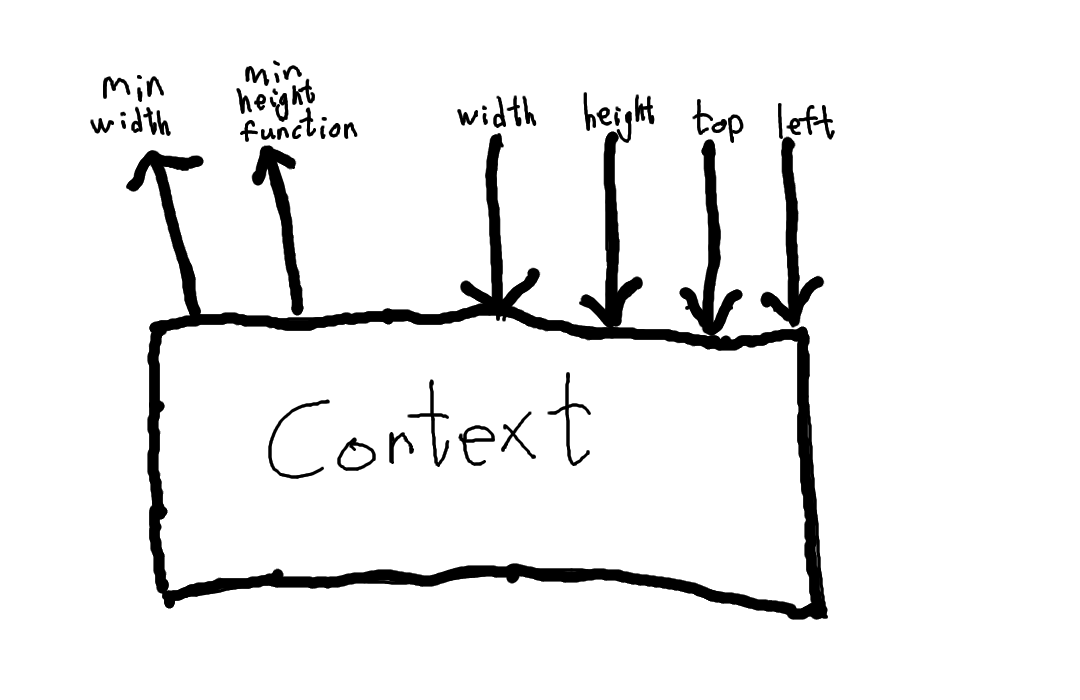 min
width
min
height
function
width
height
top
left
Context